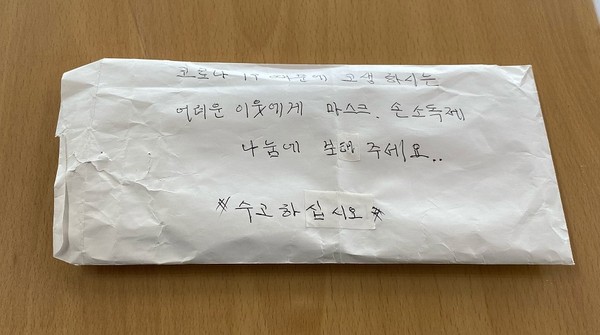 코로나 19 때문에 고생하시는
어려운 이웃에게 마스크. 손소독제
나눔에 보태 주세요..
※수고하십시오※